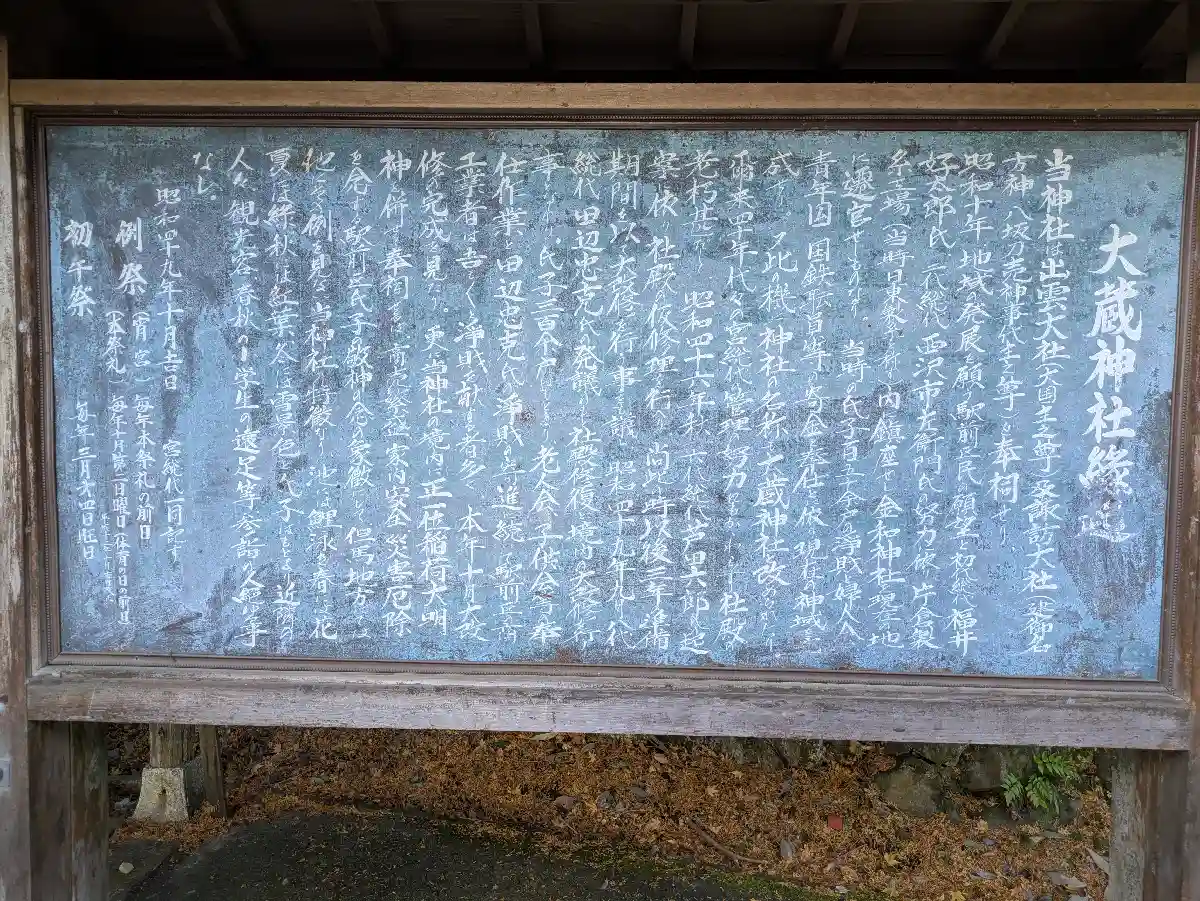 大蔵神社縁起
当神社は出雲大社(大国主之尊)及諏訪大社(建御名
方神八坂刀売神事代主之等)を奉祠せり
昭和十年地域の発展を願う駅前区民の願望で初総代福井
好太郎氏、二代総代西沢市左衛門氏の努力に依り片倉製
糸工場(当時日東 )内鎮座の金和神社現在地
に遷宮せるものなり。当時の氏子百五十余戸の浄財と婦人会
青年団国鉄 等の寄金奉仕に依り現在の神域を
成す。又此の機に神社の名称を大蔵神社と改め
爾来四十年代々の宮総代の管理の努力 社殿
老朽甚だしく昭和四十六年秋六代総代芦田六郎氏の提
案に依り社殿の仮修理を行い尚此の時以後三年の準備
期間を以て大改修を行う事を議し昭和四十九年九月八代
総代田辺忠克氏の発議により社殿修復境内の大改修を行
事となれり、氏子三百余戸はもとより老人会、子供会等奉
仕作業と田辺忠克氏の浄財の寄進に続き駅前区商
工業者は吾も吾もと浄財を献ずる者多く本年十月大改
修の完成を見たり。更に当神社の境内に正一位稲荷大明
神を併せ奉祠し商売繁盛家内安全災害厄除
を念ずる駅前区氏子の敬神の念の象徴たり。但馬地方では
他にその例を見ない当神社の荘厳なり池には鯉泳ぎ春は花
夏は絆秋には紅葉冬は雪景色と氏子はもとより近隣の
人々観光客春秋の小学生の遠足等参詣の人絶ゆる事
なし。
昭和四十九年十月吉日 宮総代一同記す
例祭 (宵宮) 毎年本祭礼の前日
(本祭礼) 毎年十月第二日曜日(体育の日の前日)
初午祭 毎年三月廿四日旺日